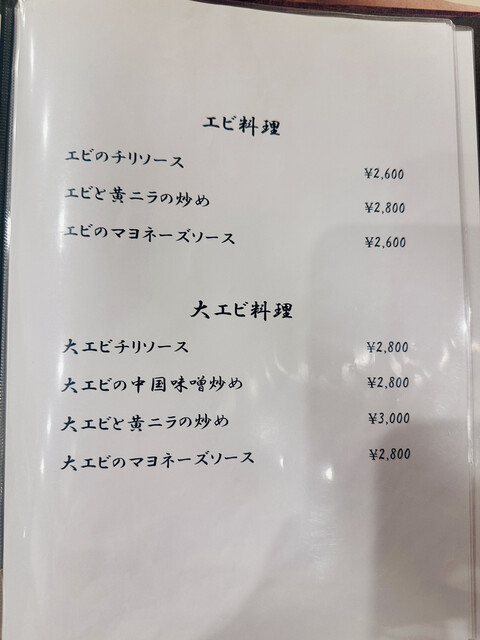 エビ料理
エビのチリソース ¥2,600
エビと黄ニラの炒め ¥2,800
エビのマヨネーズソース ¥2,600
大エビ料理
大エビチリソース ¥2,800
大エビの中国味噌炒め ¥2,800
大エビと黄ニラの炒め ¥3,000
大エビのマヨネーズソース ¥2,800